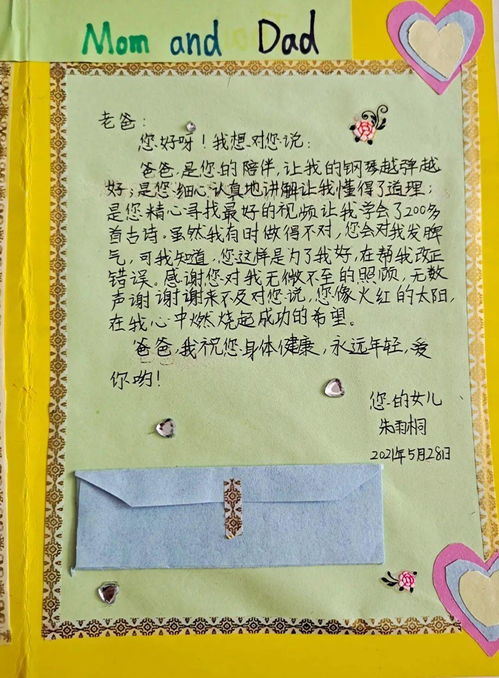 Mom and Dad
老爸：
您好呀！我想对您说：
爸爸，是您的陪伴，让我的钢琴越弹越
好；是您细心认真地讲解让我懂得了道理；
是您精心寻找最好的视频让我学会了200多
首古诗。虽然我有时做得不对，您会对我发脾
气，可我知道，您这样是为了我好，在帮我改正
错误。感谢您对我无微不至的照顾，无数
声谢谢谢来不及对您说，您像火红的太阳，
在我心中燃烧起成功的希望。
爸爸，我祝您身体健康，永远年轻，爱
你哟！
您的女儿
朱雨桐
2021年5月28日